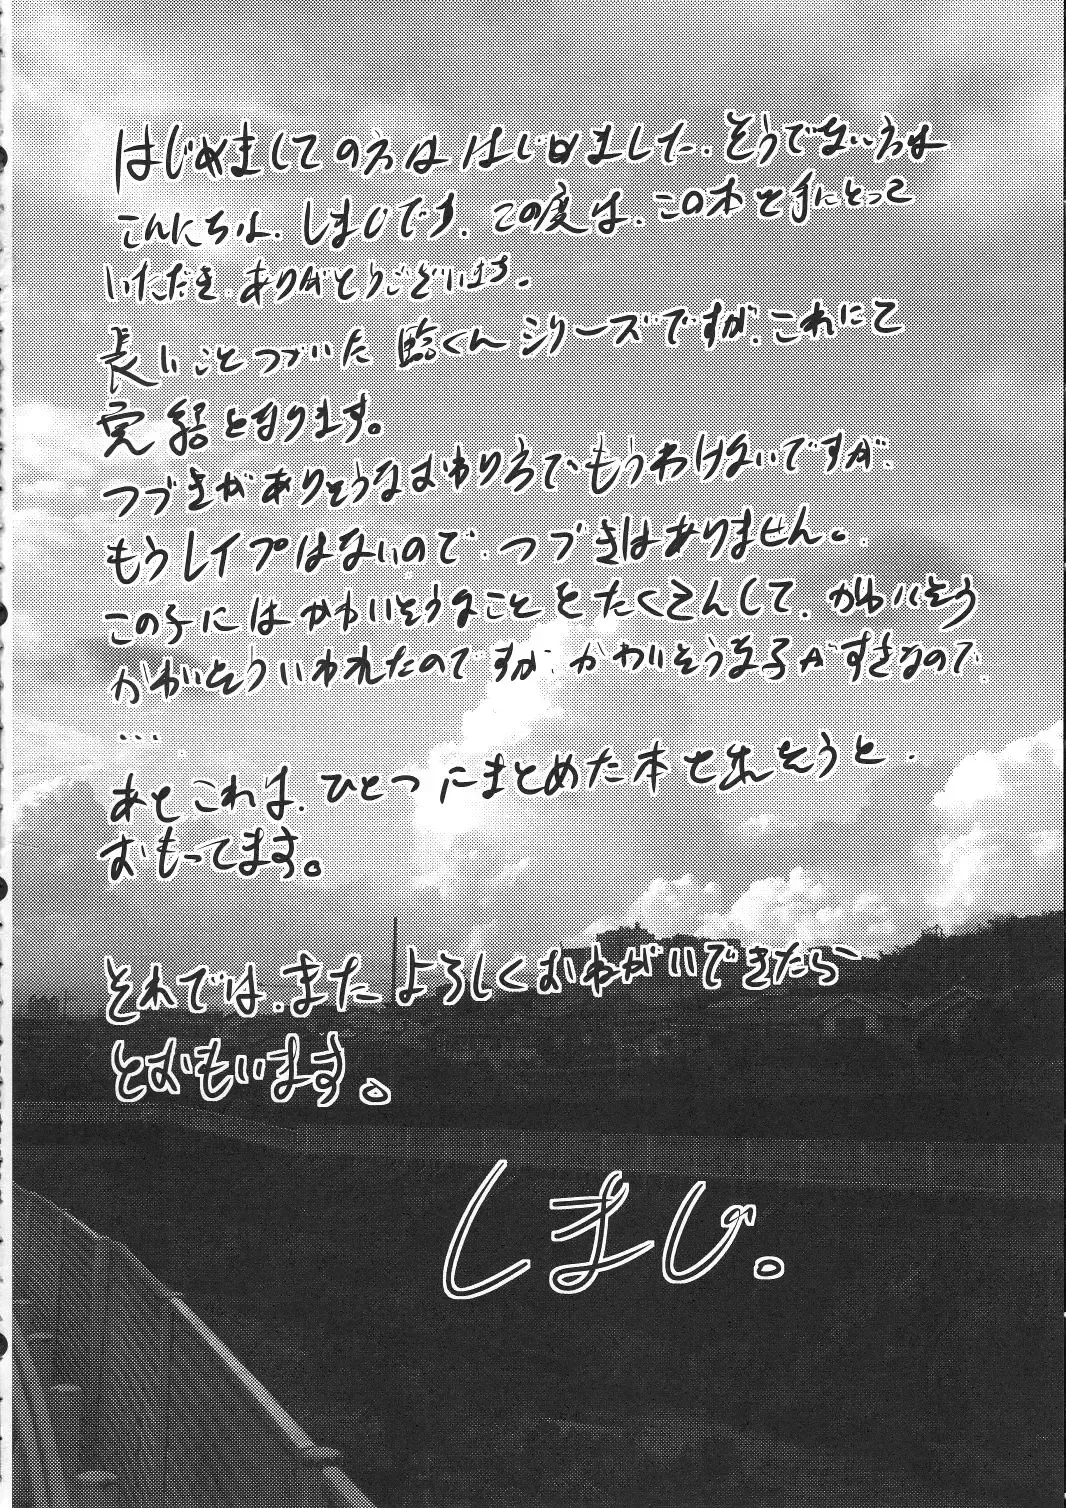 はじめましての方は はじめました。そうでない方は
こんにちは。しまじです。この度は、この本を手にとって
いただき、ありがとうございます。
長いことつづいた 臨くんシリーズですが、これにて
完結となります。
つづきがありそうなおわり方でもうわけないですが、
もうレイプはないので、つづきはありません。
この子にはかわいそうなことをたくさんして、かわいそう
かわいそういわれたのですが、かわいそうな子がすきなので、
…
あと これは、ひとつにまとめた本を出そうと、
おもってます。
それでは、また よろしくおねがいできたら
とおもいます。
しまじ。